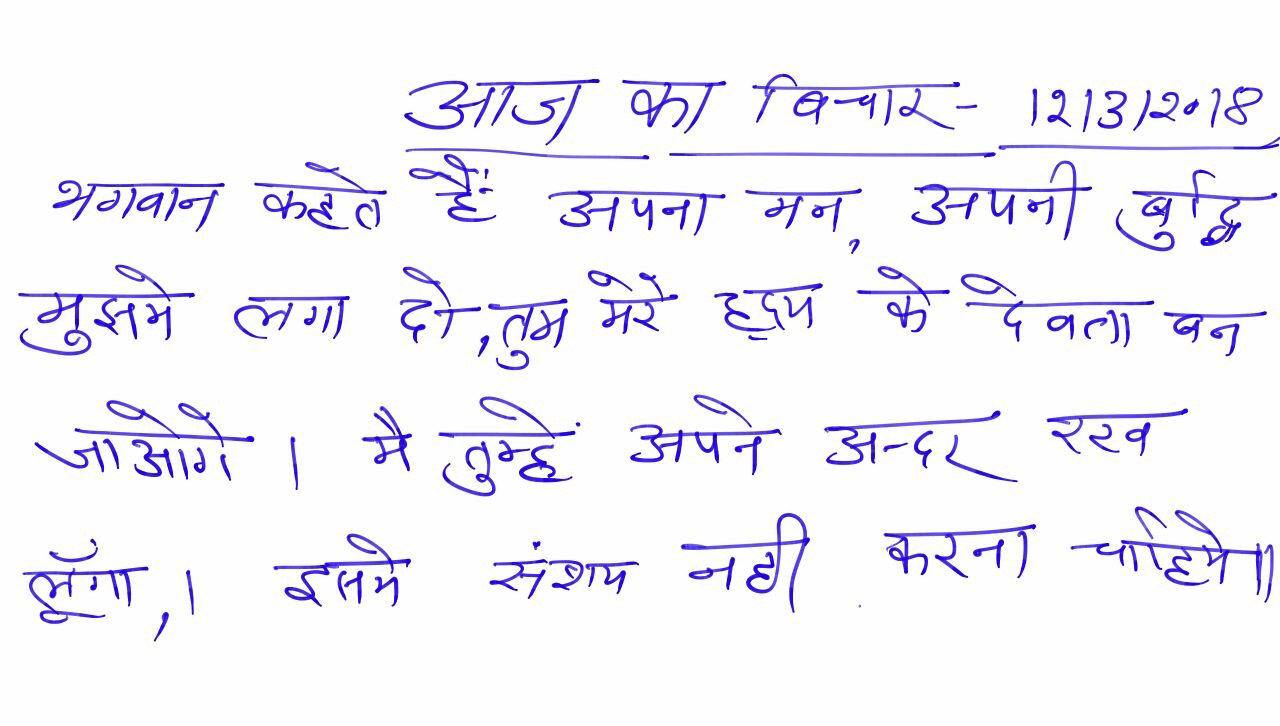 आज का विचार - 12/3/2018
भगवान कहेत हैं अपना मन, अपनी बुद्धि
मुझमे लगा दो, तुम मेरे हृदय के देवता बन
जाओगे । मै तुम्हें अपने अन्दर रख
लूँगा, । इसमे संशय नही करना चाहिये॥